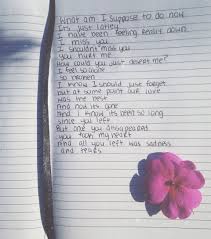 What am I suppose to do now
It's just lately
I have been feeling really down
I miss you
I shouldn't miss you
you hurt me
How could you just desert me?
I feel so alone
so broken
I know I should just forget
but at some point our love
was the best
And now its gone
And I know its been so long
since you left
But one you disappeared
you took my heart
And all you left was sadness
and tears